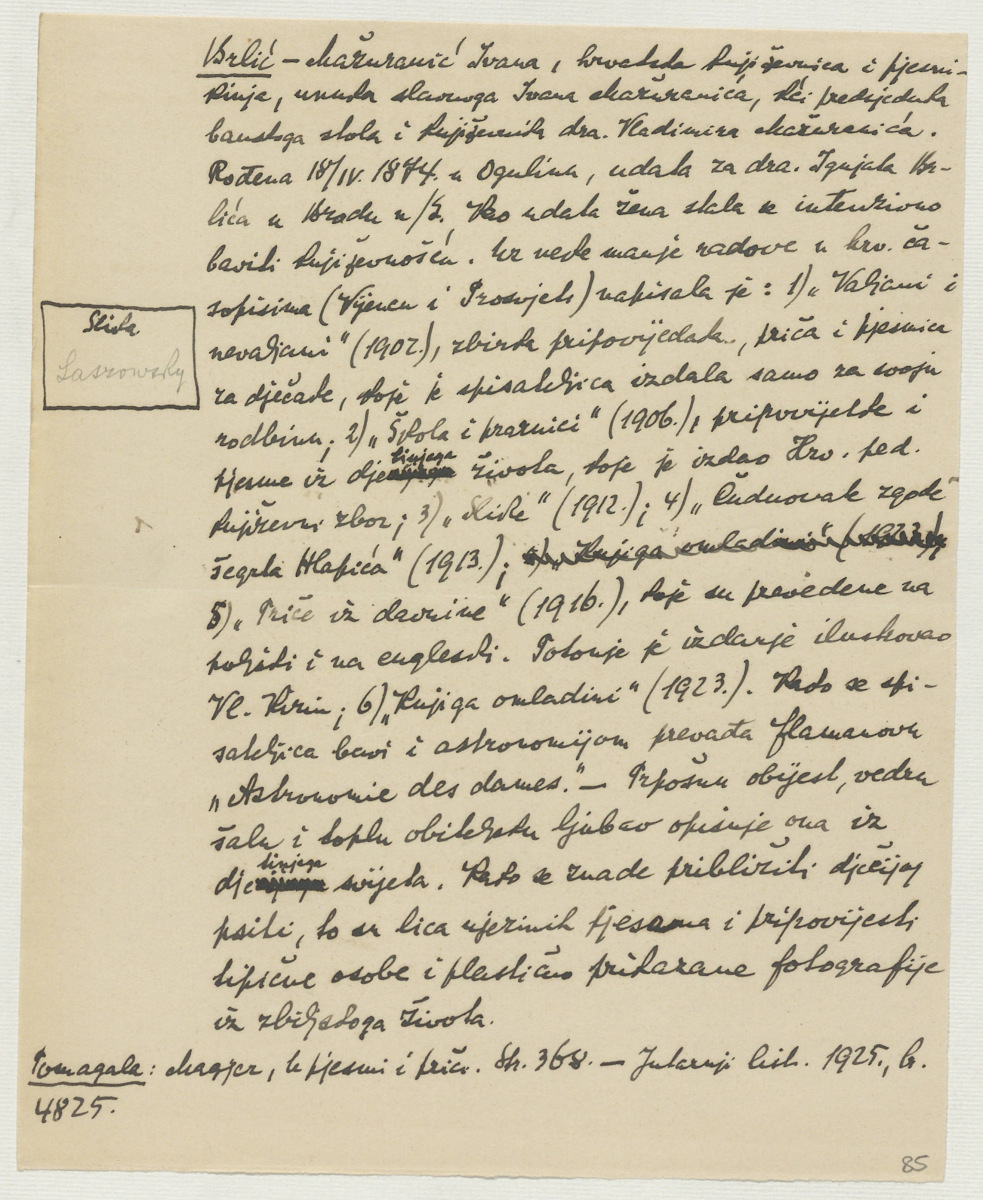 Brlić – Mažuranić Ivana, hrvatska književnica i pjesni-
kinja, unuka slavnoga Ivana Mažuranića, kći predsjednika
banskoga stola i književnika dra. Vladimira Mažuranića.
Rođena 18/IV. 1874. u Ogulinu, udata za dra. Ignjata Br-
lića u Brodu n/S. Kao udata žena stala se intenzivno
baviti književnošću. Uz neke manje radove u hrv. ča-
sopisima (Vijencu i Prosvjeti) napisala je: 1) „Valjani i
nevaljani" (1902.), zbirka pripovijedaka, priča i pjesmica
za dječake, koje je spisateljica izdala samo za svoju
rodbinu; 2) „Škola i praznici" (1906.), pripovijetke i
pjesme iz dje
tinjega
života, koje je izdao Hrv. ped.
književni zbor; 3) „Slike" (1912.); 4) „Čudnovate zgode
šegrta Hlapića" (1913.); 5) „Knjiga omladini" (1923.);
5) „Priče iz davnine" (1916.), koje su prevedene na
poljski i na engleski. Potonje je izdanje ilustrovao
Vl. Kirin; 6) „Knjiga omladini" (1923.). Kako se spi-
sateljica bavi i astronomijom prevađa Flamanovu
„Astronomie des dames." – Prpošnu obijest, vedru
šalu i toplu obiteljsku ljubav opisuje ona iz
dje
tinjega
svijeta. Kako se znade približiti dječijoj
psihi, to su lica njezinih pjesama i pripovijesti
tipične osobe i plastično prikazane fotografije
iz zbiljskoga života.
Pomagala: Magjer, U pjesmi i priči. Str. 368. – Jutarnji list. 1925., br.
4825.
Slika
Laszowsky
85